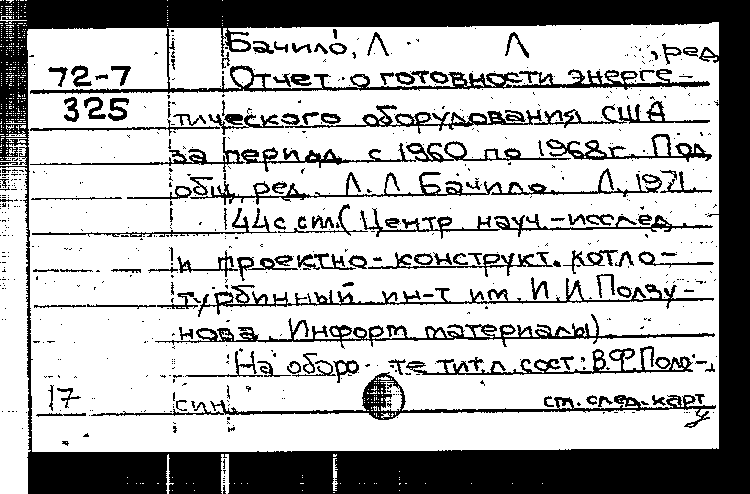 Бачило, Л Л , ред
72-7 Отчет о готовности энерге-
325 тического оборудования США
за период с 1960 по 1968г. Под
общ. ред. Л.Л Бачило. Л., 1971.
44с ст. (Центр науч.-исслед.
и проектно-конструкт. котло-
турбинный ин-т им. И.И Ползу-
нова. Информ материалы)
На оборо те тит.л сост: В.Ф.Поло-
17 син. см. след. карт